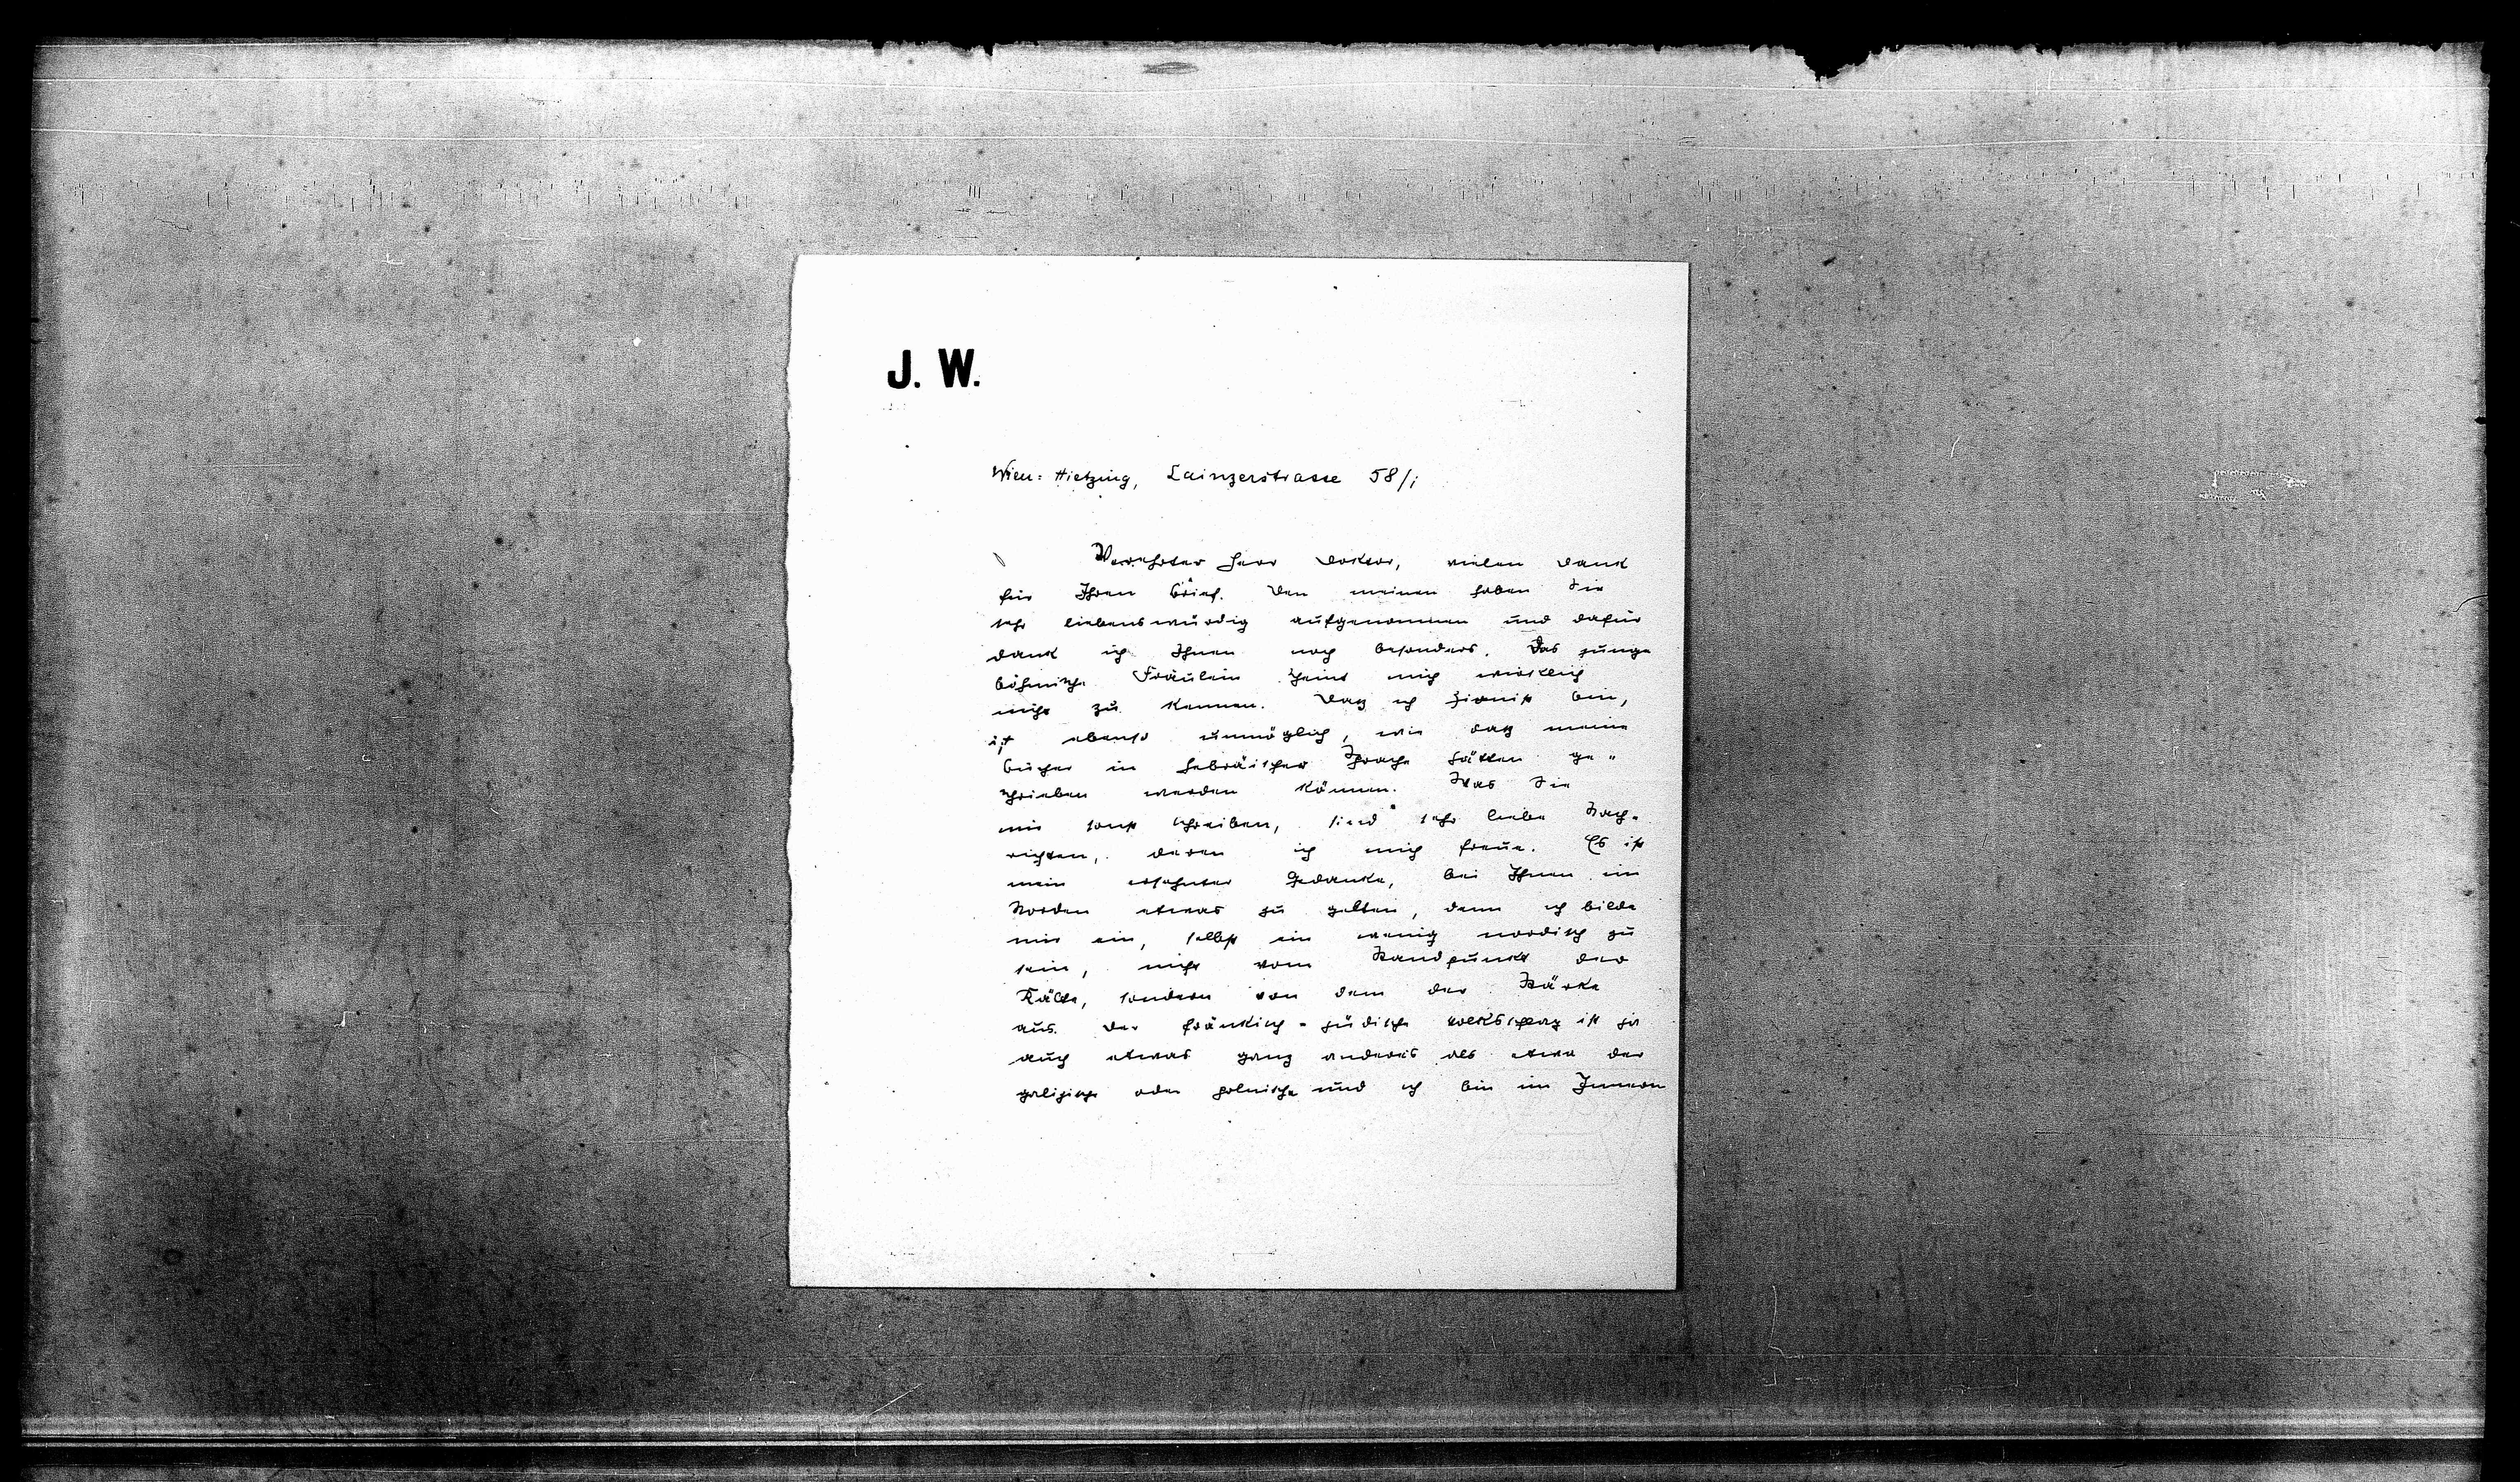 J. W.
Wien-Hietzing, Lainzerstrasse 58/I
Verehrter Herr Doktor, vielen Dank
für Ihren Brief. Den meinen haben Sie
sehr liebenswürdig aufgenommen und dafür
dank ich Ihnen noch besonders. Das junge
böhmische Fräulein scheint mich wirklich
nicht zu kennen. Daß ich Zionist bin,
ist ebenso unmöglich, wie daß meine
Bücher in hebräischer Sprache hätten ge-
schrieben werden können. Was Sie
mir sonst schreiben, sind sehr liebe Nach-
richten, deren ich mich freue. Es ist
mein ersehnter Gedanke, bei Ihnen im
Norden etwas zu gelten, denn ich bilde
mir ein, selbst ein wenig nordisch zu
sein, nicht vom Standpunkt der
Kälte, sondern von dem der Stärke
aus. Der fränkisch-jüdische ist ja
auch etwas ganz anderes als etwa der
galizische oder polnische und ich bin im Innern